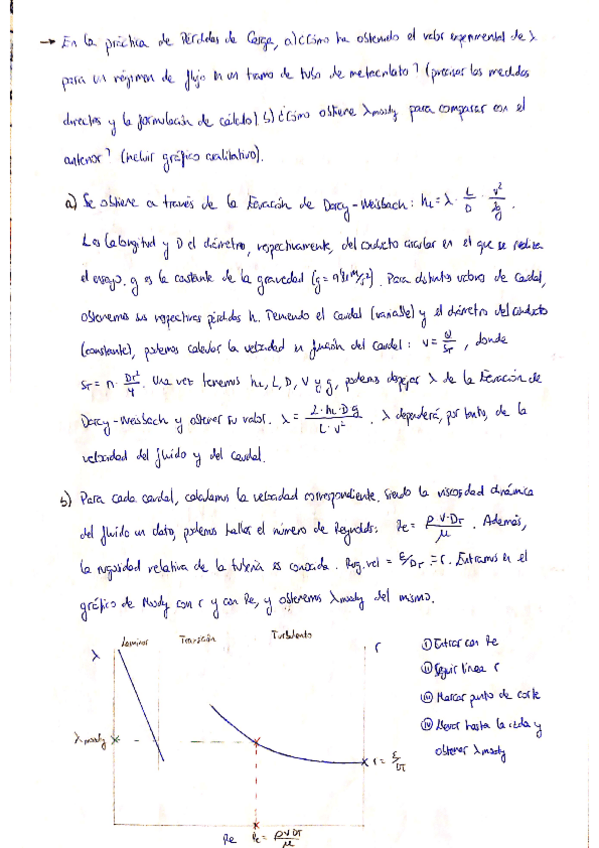 → En la práctica de Pérdidas de Carga, a) ¿Cómo ha obtenido el valor experimental de λ
para un régimen de flujo en un tramo de tubo de metacrilato? (precisar las medidas
directas y la formulación de cálculo) b) ¿Cómo obtiene λmoody para comparar con el
anterior? (incluir gráfico cualitativo).
a) Se obtiene a través de la Ecuación de Darcy-Weisbach: hL = λ · L/D · v²/2g .
L es la longitud y D el diámetro, respectivamente, del conducto circular en el que se realiza
el ensayo. g es la constante de la gravedad (g = 9'81 m/s²). Para distintos valores de caudal,
obtenemos sus respectivas pérdidas h. Teniendo el caudal (variable) y el diámetro del conducto
(constante), podemos calcular la velocidad en función del caudal: v = Q/ST , donde
ST = π · DT²/4 . Una vez tenemos hL, L, D, V y g, podemos despejar λ de la Ecuación de
Darcy-Weisbach y obtener su valor. λ = 2·hL·D g / L·v² . λ dependerá, por tanto, de la
velocidad del fluido y del caudal.
b) Para cada caudal, calculamos la velocidad correspondiente. Siendo la viscosidad dinámica
del fluido un dato, podemos hallar el número de Reynolds: Re = ρ V·DT / μ . Además,
la rugosidad relativa de la tubería es conocida. Rug.rel = ε/DT = r. Entramos en el
gráfico de Moody con r y con Re, y obtenemos λmoody del mismo.
Laminar Transición Turbulento
λ r
λmoody
r = ε/DT
Re Re = ρVDT/μ
① Entrar con Re
② Seguir línea r
③ Marcar punto de corte
④ Llevar hasta la izda y
obtener λmoody